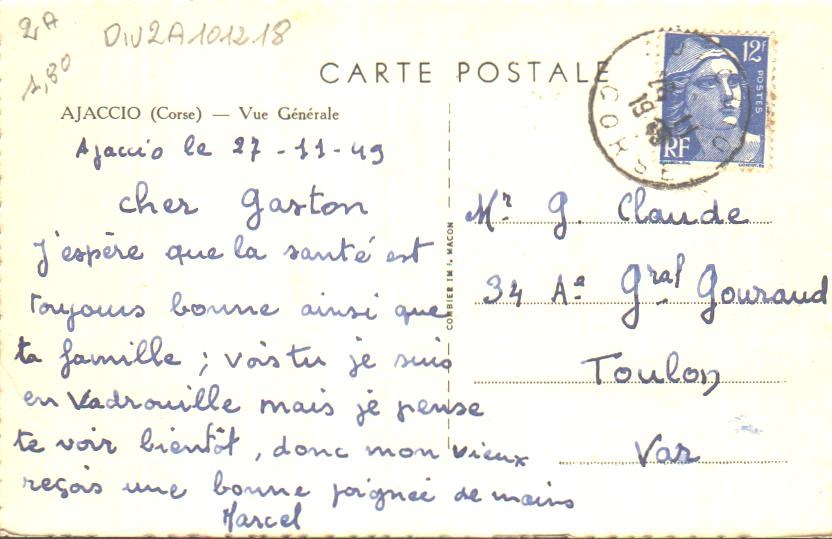 2A
DIV2A101218
1,80
CARTE POSTALE
AJACCIO (Corse) — Vue Générale
Ajaccio le 27-11-49
cher Gaston
J'espère que la santé est
toujours bonne ainsi que
ta famille ; vois tu je suis
en vadrouille mais je pense
te voir bientôt, donc mon vieux
reçois une bonne poignée de mains
Marcel
COMBIER IMP. MACON
12F
POSTES
RF
CORSE
Mr G. Claude
34 Ae Gral Gouraud
Toulon
Var